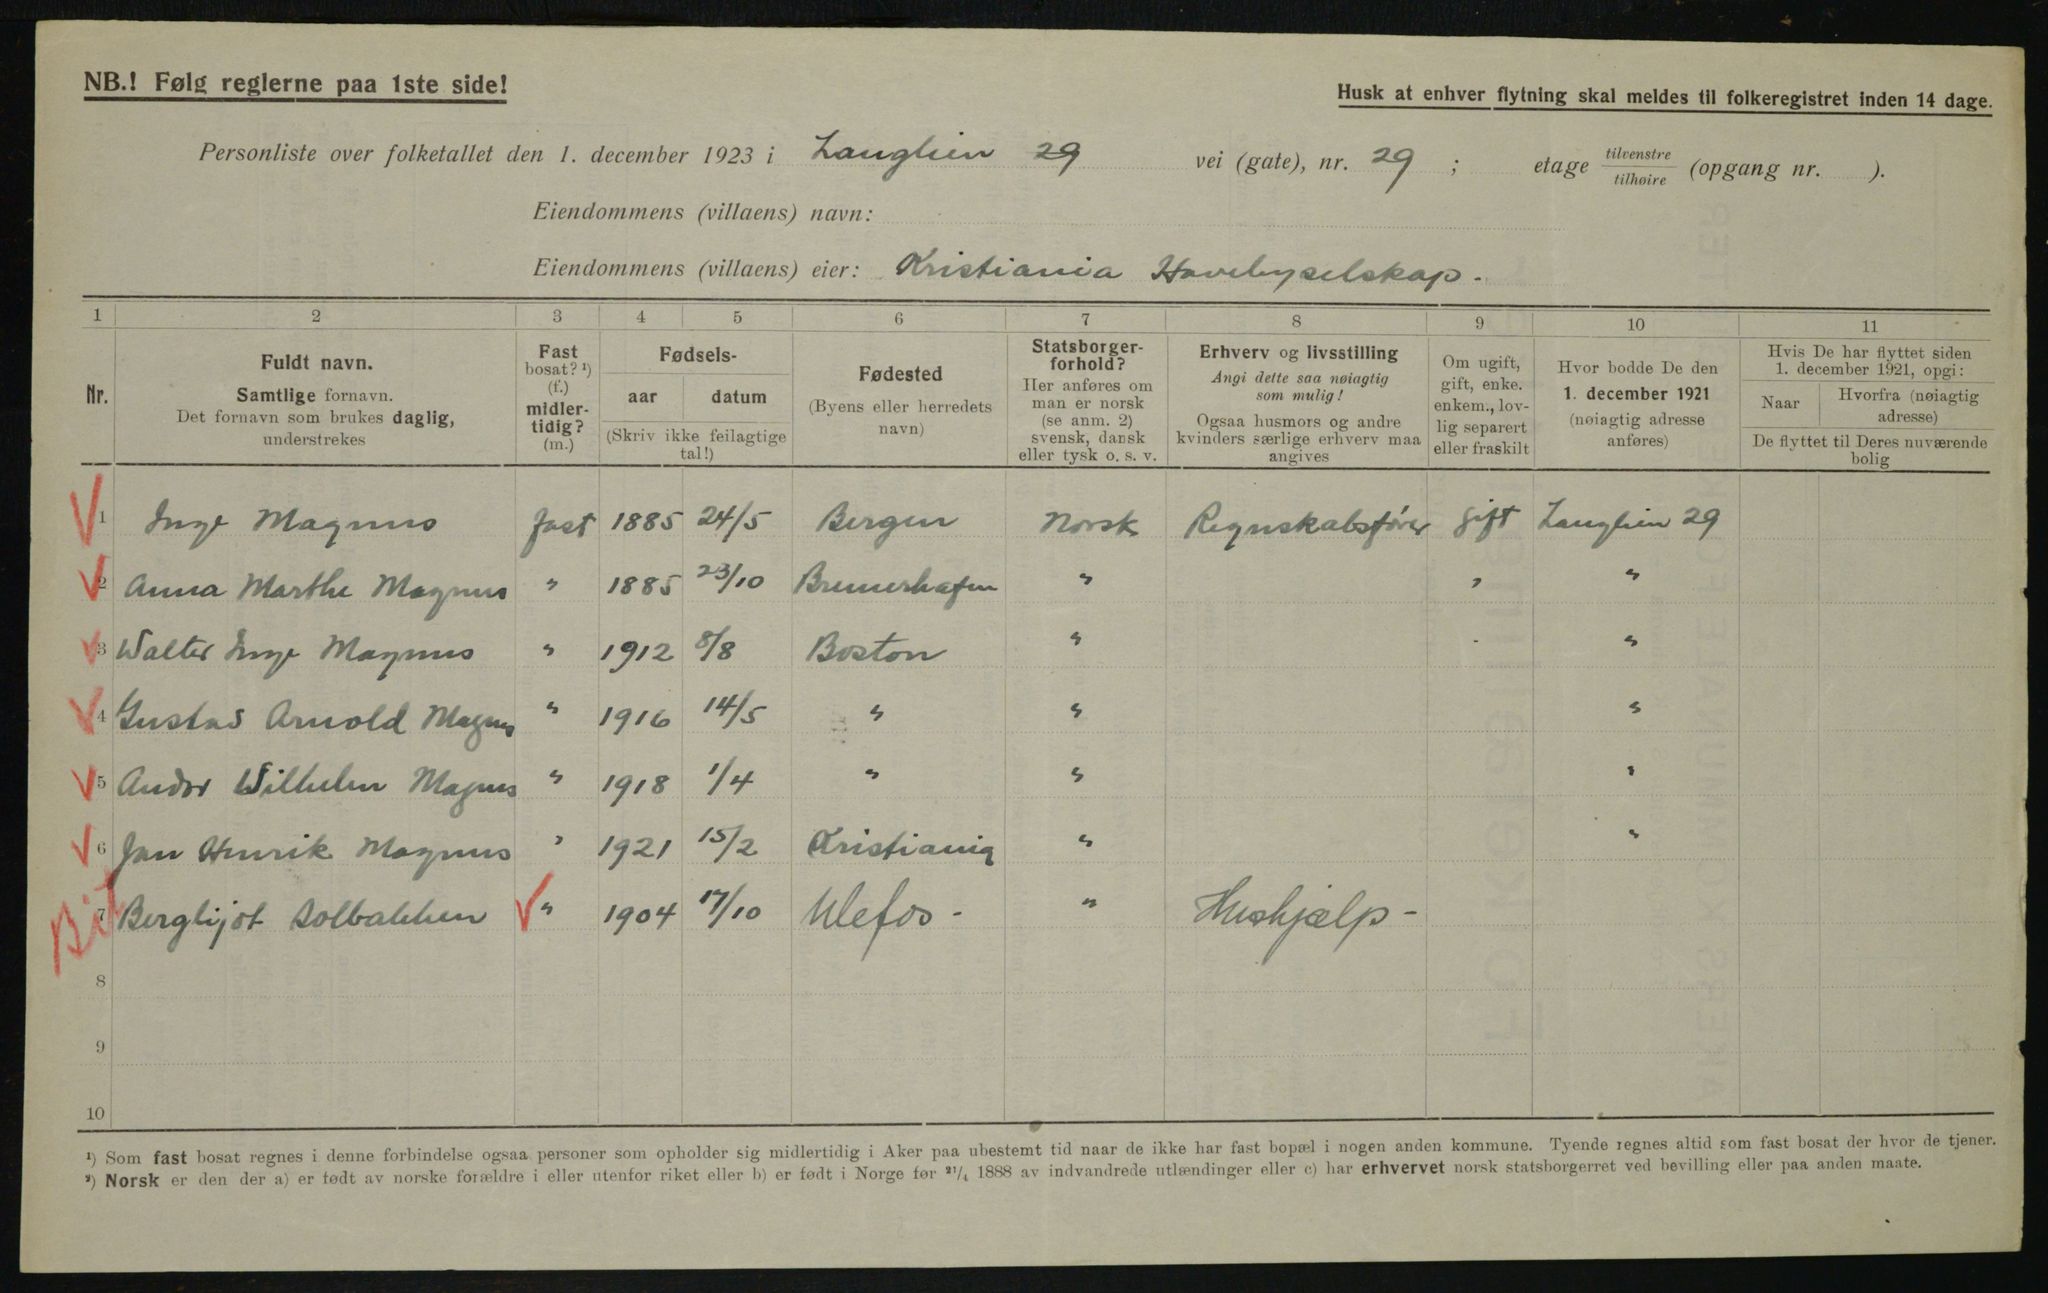 NB.! Følg reglerne paa 1ste side!
Husk at enhver flytning skal meldes til folkeregistret inden 14 dage.
Personliste over folketallet den 1. december 1923 i Langlien 29 vei (gate), nr. 29 ; etage tilvenstre / tilhøire (opgang nr. ).
Eiendommens (villaens) navn:
Eiendommens (villaens) eier: Kristiania Havebyselskap.
1 2 3 4 5 6 7 8 9 10 11
Nr.
Fuldt navn.
Samtlige fornavn.
Det fornavn som brukes daglig,
understrekes
Fast
bosat? ¹)
(f.)
midler-
tidig?
(m.)
Fødsels-
aar datum
(Skriv ikke feilagtige
tal!)
Fødested
(Byens eller herredets
navn)
Statsborger-
forhold?
Her anføres om
man er norsk
(se anm. 2)
svensk, dansk
eller tysk o. s. v.
Erhverv og livsstilling
Angi dette saa nøiagtig
som mulig!
Ogsaa husmors og andre
kvinders særlige erhverv maa
angives
Om ugift,
gift, enke.
enkem., lov-
lig separert
eller fraskilt
Hvor bodde De den
1. december 1921
(nøiagtig adresse
anføres)
Hvis De har flyttet siden
1. december 1921, opgi:
Naar
Hvorfra (nøiagtig
adresse)
De flyttet til Deres nuværende
bolig
1 Inge Magnus fast 1885 24/5 Bergen Norsk Regnskabsfører gift Langlien 29
2 Anna Marthe Magnus " 1885 23/10 Bremerhafen " " "
3 Walter Inge Magnus " 1912 8/8 Boston " "
4 Gustav Arnold Magnus " 1916 14/5 " " "
5 Andor Wilhelm Magnus " 1918 1/4 " " "
6 Jan Henrik Magnus " 1921 15/2 Kristiania " "
7 Bergljot Solbakken " 1904 17/10 Ulefos - " Hushjælp -
8
9
10
¹) Som fast bosat regnes i denne forbindelse ogsaa personer som opholder sig midlertidig i Aker paa ubestemt tid naar de ikke har fast bopæl i nogen anden kommune. Tyende regnes altid som fast bosat der hvor de tjener.
²) Norsk er den der a) er født av norske forældre i eller utenfor riket eller b) er født i Norge før ²¹/₄ 1888 av indvandrede utlændinger eller c) har erhvervet norsk statsborgerret ved bevilling eller paa anden maate.